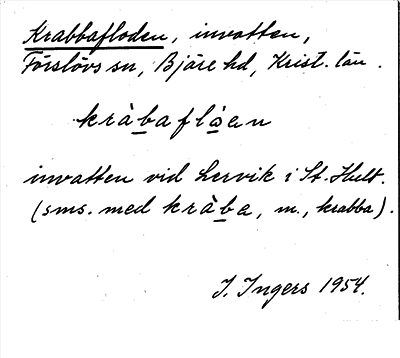 Krabbafloden, invatten,
Förslövs sn, Bjäre hd, Krist. län.
kràbaflöen
invatten vid Lervik i St. Hult.
(sms. med kràba, m., krabba).
I. Ingers 1954.